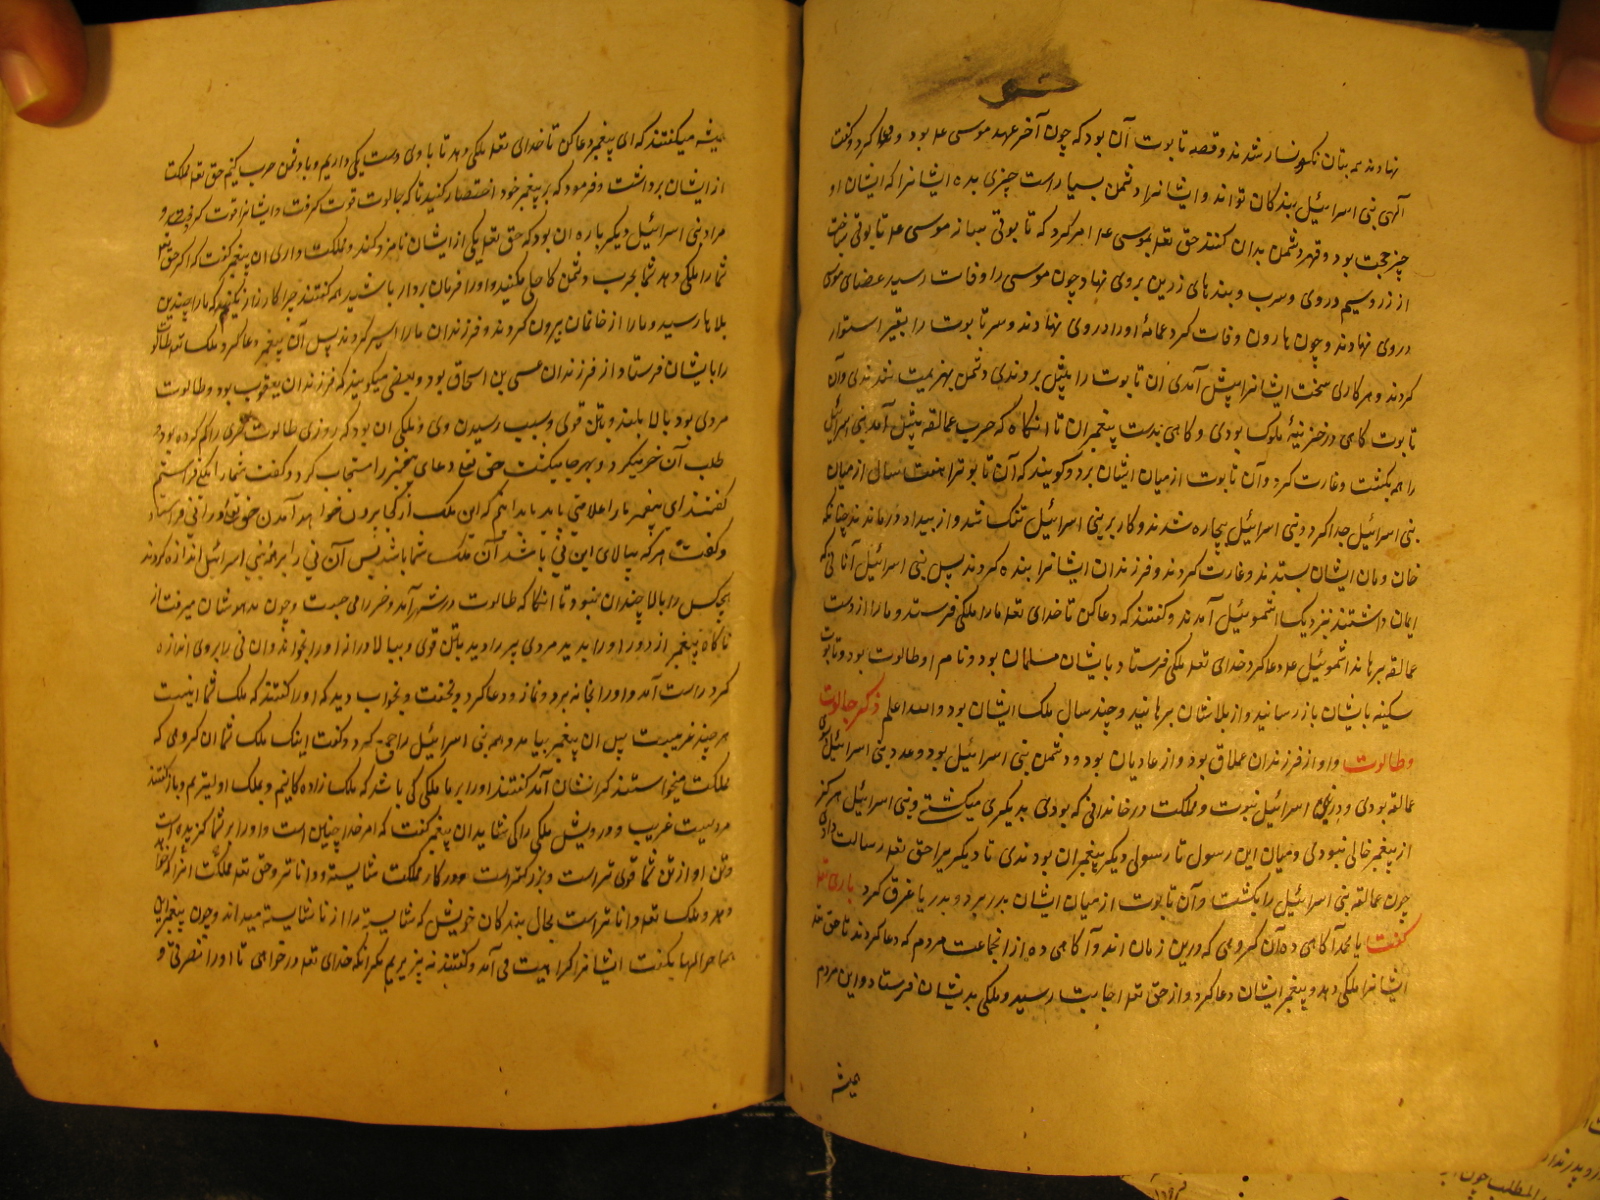 نهادند همه بتان نگونسار شدند و قصه تابوت آن بود که چون آخر عهد موسی عه بود دعا کرد و گفت
آلهی بنی اسرائیل بندگان تواند و ایشانرا دشمن بسیار است چیزی بده ایشانرا که ایشان او
چیز حجت بود و قهر دشمن بدان کنند حق تعه بموسی عه امر کرد که تابوتی بساز موسی عه تابوتی بساخت
از زر و سیم در وی و سرب و بندهای زرین بروی نهاد چون موسی را وفات رسید عصای موسی
در وی نهادند و چون هارون وفات کرد عمامهٔ او را در وی نهادند و سر تابوت را بقیر استوار
کردند و هر کاری سخت ایشانرا پیش آمدی آن تابوت را پیش بردندی دشمن بهزیمت شدندی و آن
تابوت گاهی در خزینهٔ ملوک بودی و گاهی بدست پیغمبران تا آنگاه که حرب عمالقه پیش آمد بنی اسرائیل
را هم بکشت و غارت کرد و آن تابوت از میان ایشان برد و گویند که آن تابوترا هفت سال از میان
بنی اسرائیل جدا کرد و بنی اسرائیل بیچاره شدند و کار بر بنی اسرائیل تنگ شد و از بیداد درماندند چنانکه
خان و مان ایشان بستدند و غارت کردند و فرزندان ایشانرا بنده کردند پس بنی اسرائیل آنانی که
ایمان داشتند نزدیک اشموئیل آمدند و گفتند که دعا کن تا خدای تعه ما را ملکی فرستد و ما را از دست
عمالقه برهاند اشموئیل عه دعا کرد خدای تعه ملکی فرستاد بایشان مسلمان بود و نام او طالوت بود و تابوت
سکینه بایشان باز رسانید و از بلاشان برهانید و چند سال ملک ایشان بود والله اعلم ذکر جالوت
و طالوت و او از فرزندان عملاق بود و از عادیان بود و دشمن بنی اسرائیل بود و عدد بنی اسرائیل
عمالقه بودی و در بنی اسرائیل نبوت و مملکت در خاندانی که بودی بدیگری میگشتی و بنی اسرائیل هرگز
از پیغمبر خالی نبودی و میان این رسول تا رسولی دیگر پیغمبران بودندی تا دیگریرا حق تعه رسالت دادی
چون عمالقه بنی اسرائیل را بکشت و آن تابوت از میان ایشان بدر برد و بدریا غرق کرد باری تعه
گفت یا محمد آگاهی ده آن گروهی که درین زمان اند و آگاهی ده از انجماعت مردم که دعا کردند تا حق تعه
ایشانرا ملکی دهد و پیغمبر ایشان دعا کرد و از حق تعه اجابت رسید و ملکی بدیشان فرستاد و این مردم
همیشه
همیشه میگفتند که ای پیغمبر دعا کن تا خدای تعه ملکی دهد تا با وی دست یکی داریم و با دشمن حرب کنیم حق تعه مملکت
از ایشان برداشت و فرمود که بر پیغمبر خود اختصار کنید تا که جالوت قوت گرفت و ایشانرا قوت کم رفت و
مراد بنی اسرائیل دیگر باره آن بود که حق تعه یکی از ایشان نامزد کند و مملکت داری آن پیغمبر گفت که اگر حق تعه
شما را ملکی دهد شما بحرب دشمن کاهلی مکنید و او را فرمان بردار باشید هم گفتند چرا کارزار نکنیم که ما را چندین
بلاها رسید و ما را از خانمان بیرون کردند و فرزندان ما را اسیر کردند پس آن پیغمبر دعا کرد ملک تعه طالوت
را بایشان فرستاد از فرزندان عیسی بن اسحاق بود و بعضی میگویند که فرزندان یعقوب بود و طالوت
مردی بود بالا بلند و بتن قوی و سبب رسیدن وی و ملکی آن بود که روزی طالوت خری را گم کرده بود و
طلب آن خر میکرد و بهر جا میگشت حق تعه دعای پیغمبر را مستجاب کرد و گفت شما را ملکی فرستم
گفتند ای پیغمبر ما را علامتی باید بدانیم که این ملک از کجا برون خواهد آمدن حق تعه او را نی فرستاد
و گفت هر که ببالای این نی باشد آن ملک شما باشد پس آن نی را بر همهٔ بنی اسرائیل اندازه کردند
هیچکس را بالا چندان نبود تا آنگا که طالوت در شهر آمد و خر را می جست و چون مدهوشان میرفت از
ناگاه پیغمبر از دور او را بدید مردی پیر را دید بتن قوی و ببالا دراز او را بخواند و ان نی را بروی اندازه
کرد راست آمد و او را بخانه برد و نماز و دعا کرد و بخفت و بخواب دید که او را گفتند که ملک شما اینست
هر چند غریبست پس آن پیغمبر بیامد و همه بنی اسرائیل را جمع کرد و گفت اینک ملک شما آن گروهی که
مملکت میخواستند گرانشان آمد گفتند او را بر ما ملکی کی باشد که ملک زاده گانیم و بملک اولیتریم و باز گفتند
مردیست غریب و درویش ملکی را کی شاید آن پیغمبر گفت که امر خدا چنین است و او را بر شما گزیده است
و تن او از تن شما قوی تر است و بزرگتر است و در کار مملکت شایسته و داناتر و حق تعه مملکت آنرا که خواهد
دهد و ملک تعه داناتر است بحال بندگان خویش که شایسته را از ناشایسته میداند و چون پیغمبر این
ماجراها بگفت ایشانرا کراهیت می آمد و گفتند نه پذیریم مگر آنکه خدای تعه درخواهی تا او را نصرتی و